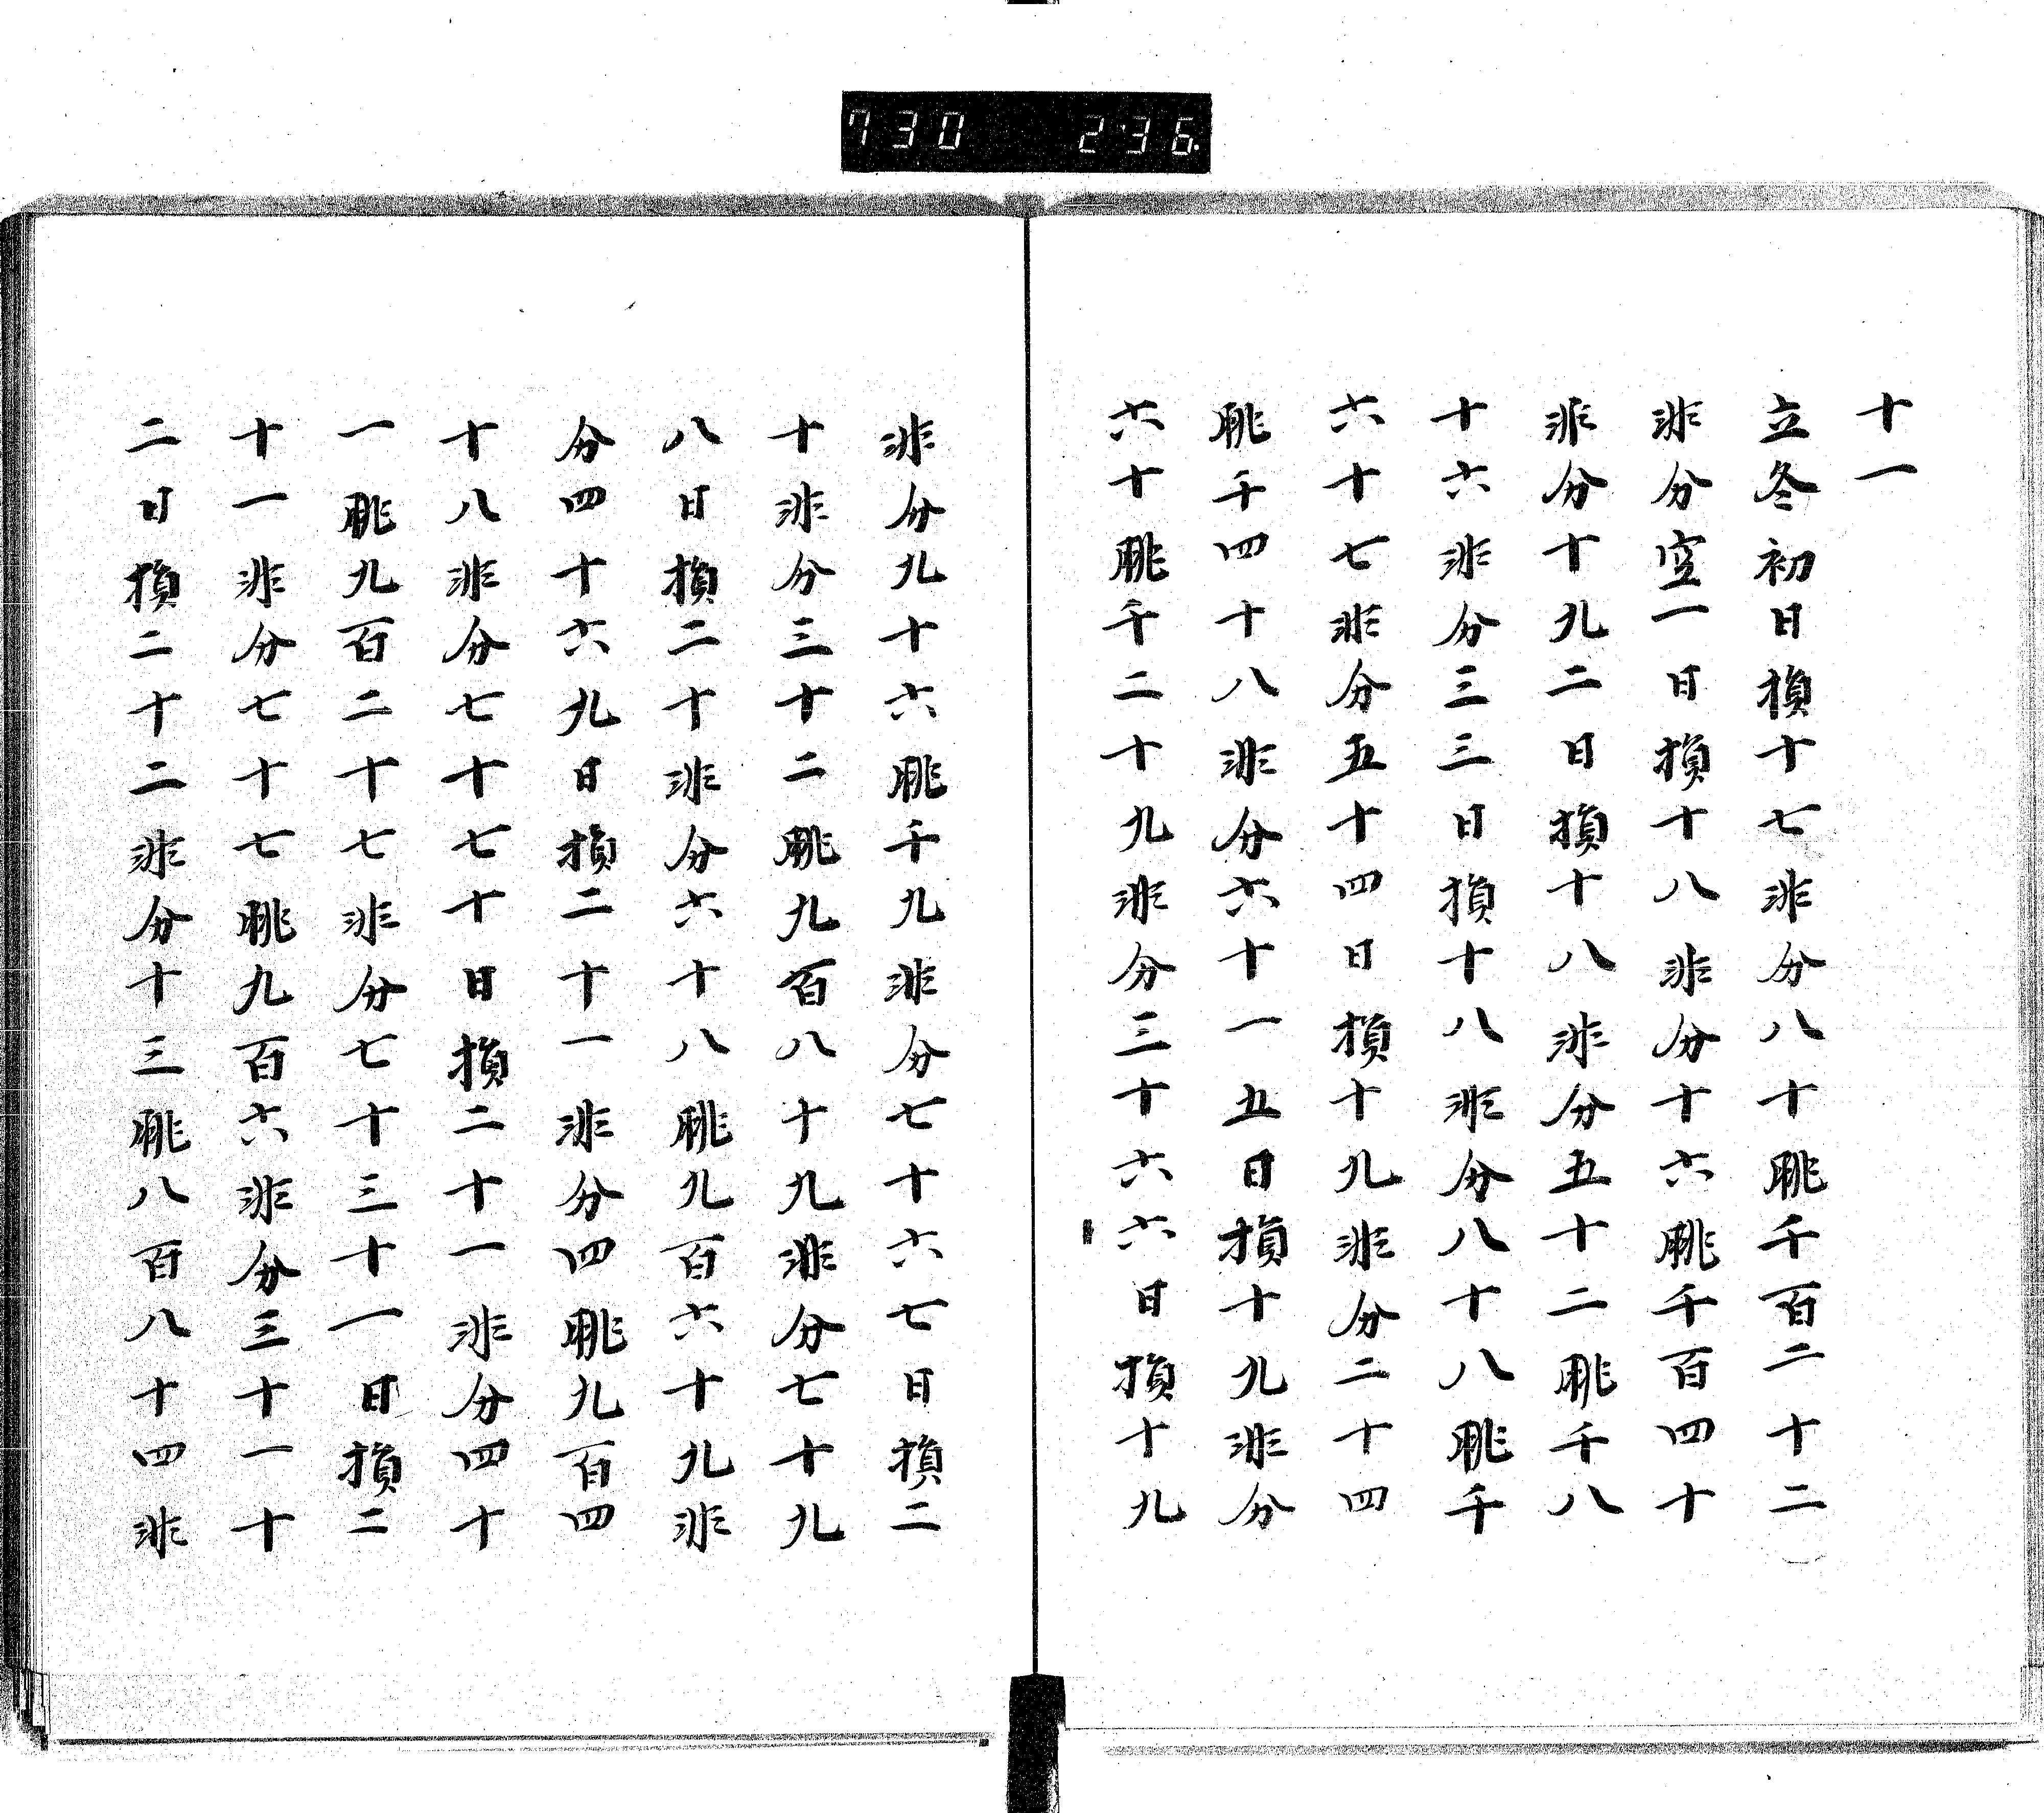 730 236
十一
立冬初日損十七非分八十朓千百二十二
非分空一日損十八非分十六朓千百四十
非分十九二日損十八非分五十二朓千八
十六非分三三日損十八非分八十八朓千
六十七非分五十四日損十九非分二十四
朓千四十八非分六十一五日損十九非分
六十朓千二十九非分三十六六日損十九
非分九十六朓千九非分七十六七日損二
十非分三十二朓九百八十九非分七十九
八日損二十非分六十八朓九百六十九非
分四十六九日損二十一非分四朓九百四
十八非分七十七十日損二十一非分四十
一朓九百二十七非分七十三十一日損二
十一非分七十七朓九百六非分三十一十
二日損二十二非分十三朓八百八十四非